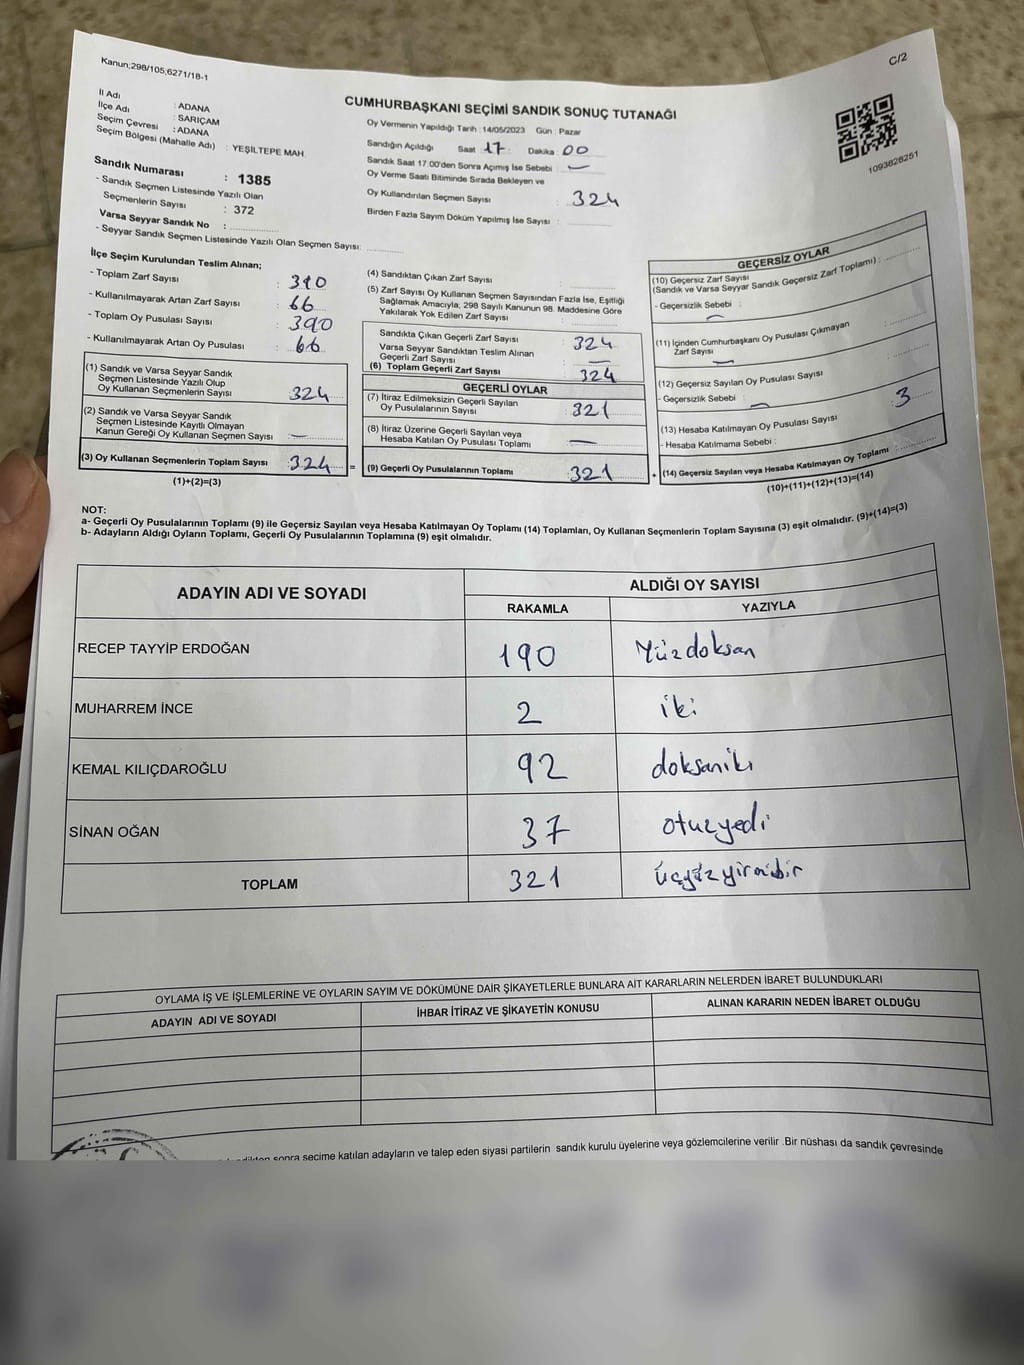 Kanun;298/105;6271/18-1
C/2
İl Adı : ADANA
İlçe Adı : SARIÇAM
Seçim Çevresi : ADANA
Seçim Bölgesi (Mahalle Adı) : YEŞİLTEPE MAH.
Sandık Numarası : 1385
- Sandık Seçmen Listesinde Yazılı Olan
Seçmenlerin Sayısı : 372
Varsa Seyyar Sandık No :
- Seyyar Sandık Seçmen Listesinde Yazılı Olan Seçmen Sayısı:
CUMHURBAŞKANI SEÇİMİ SANDIK SONUÇ TUTANAĞI
Oy Vermenin Yapıldığı Tarih : 14/05/2023 Gün : Pazar
Sandığın Açıldığı Saat 17 : Dakika 00
Sandık Saat 17.00'den Sonra Açımış İse Sebebi : —
Oy Verme Saati Bitiminde Sırada Bekleyen ve
Oy Kullandırılan Seçmen Sayısı : 324
Birden Fazla Sayım Döküm Yapılmış İse Sayısı :
1093828251
İlçe Seçim Kurulundan Teslim Alınan;
- Toplam Zarf Sayısı : 390
- Kullanılmayarak Artan Zarf Sayısı : 66
- Toplam Oy Pusulası Sayısı : 390
- Kullanılmayarak Artan Oy Pusulası : 66
(1) Sandık ve Varsa Seyyar Sandık
Seçmen Listesinde Yazılı Olup
Oy Kullanan Seçmenlerin Sayısı : 324
(2) Sandık ve Varsa Seyyar Sandık
Seçmen Listesinde Kayıtlı Olmayan
Kanun Gereği Oy Kullanan Seçmen Sayısı : —
(3) Oy Kullanan Seçmenlerin Toplam Sayısı : 324 =
(1)+(2)=(3)
(4) Sandıktan Çıkan Zarf Sayısı :
(5) Zarf Sayısı Oy Kullanan Seçmen Sayısından Fazla İse, Eşitliği
Sağlamak Amacıyla; 298 Sayılı Kanunun 98. Maddesine Göre
Yakılarak Yok Edilen Zarf Sayısı :
Sandıkta Çıkan Geçerli Zarf Sayısı : 324
Varsa Seyyar Sandıktan Teslim Alınan
Geçerli Zarf Sayısı : —
(6) Toplam Geçerli Zarf Sayısı : 324
GEÇERLİ OYLAR
(7) İtiraz Edilmeksizin Geçerli Sayılan
Oy Pusulalarının Sayısı : 321
(8) İtiraz Üzerine Geçerli Sayılan veya
Hesaba Katılan Oy Pusulası Toplamı : —
(9) Geçerli Oy Pusulalarının Toplamı : 321 +
GEÇERSİZ OYLAR
(10) Geçersiz Zarf Sayısı
(Sandık ve Varsa Seyyar Sandık Geçersiz Zarf Toplamı) :
- Geçersizlik Sebebi : —
(11) İçinden Cumhurbaşkanı Oy Pusulası Çıkmayan
Zarf Sayısı : —
(12) Geçersiz Sayılan Oy Pusulası Sayısı :
- Geçersizlik Sebebi : —
(13) Hesaba Katılmayan Oy Pusulası Sayısı : 3
- Hesaba Katılmama Sebebi :
(14) Geçersiz Sayılan veya Hesaba Katılmayan Oy Toplamı :
(10)+(11)+(12)+(13)=(14)
NOT:
a- Geçerli Oy Pusulalarının Toplamı (9) ile Geçersiz Sayılan veya Hesaba Katılmayan Oy Toplamı (14) Toplamları, Oy Kullanan Seçmenlerin Toplam Sayısına (3) eşit olmalıdır. (9)+(14)=(3)
b- Adayların Aldığı Oyların Toplamı, Geçerli Oy Pusulalarının Toplamına (9) eşit olmalıdır.
ADAYIN ADI VE SOYADI ALDIĞI OY SAYISI
RAKAMLA YAZIYLA
RECEP TAYYİP ERDOĞAN 190 Yüzdoksan
MUHARREM İNCE 2 iki
KEMAL KILIÇDAROĞLU 92 doksaniki
SİNAN OĞAN 37 otuzyedi
TOPLAM 321 üçyüzyirmibir
OYLAMA İŞ VE İŞLEMLERİNE VE OYLARIN SAYIM VE DÖKÜMÜNE DAİR ŞİKAYETLERLE BUNLARA AİT KARARLARIN NELERDEN İBARET BULUNDUKLARI
ADAYIN ADI VE SOYADI İHBAR İTİRAZ VE ŞİKAYETİN KONUSU ALINAN KARARIN NEDEN İBARET OLDUĞU
sonra seçime katılan adayların ve talep eden siyasi partilerin sandık kurulu üyelerine veya gözlemcilerine verilir .Bir nüshası da sandık çevresinde